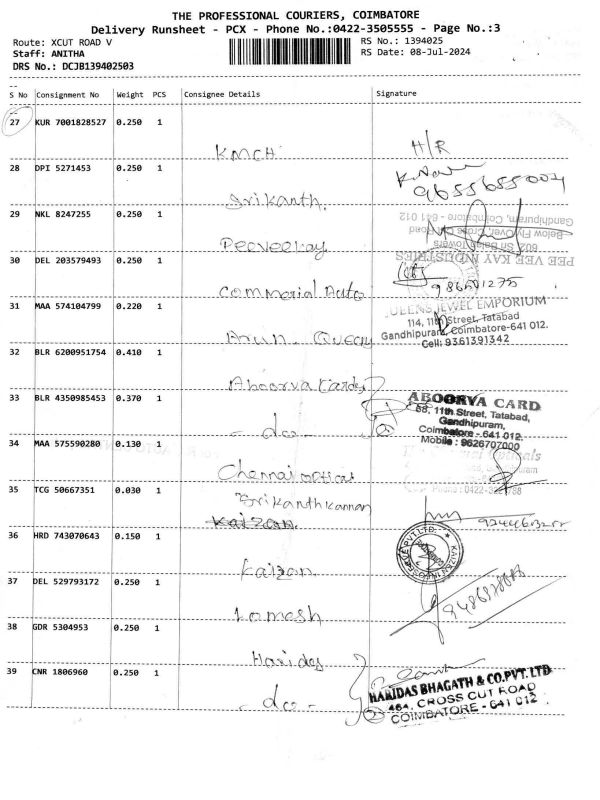 THE PROFESSIONAL COURIERS, COIMBATORE
Delivery Runsheet - PCX - Phone No.:0422-3505555 - Page No.:3
Route: XCUT ROAD V RS No.: 1394025
Staff: ANITHA RS Date: 08-Jul-2024
DRS No.: DCJB139402503
S No Consignment No Weight PCS Consignee Details Signature
27 KUR 7001828527 0.250 1
KMCH H/R
28 DPI 5271453 0.250 1
9655655004
Srikanth.
29 NKL 8247255 0.250 1
Gandhipuram, Coimbatore - 641 012
Below Fly Over, Cross Cut Road
Peeveekay
602, Sri Balaji Towers
PEE VEE KAY INDUSTRIES
30 DEL 203579493 0.250 1
Commerial Auto
31 MAA 574104799 0.220 1
QUEENS JEWEL EMPORIUM
114, 11th Street, Tatabad
Gandhipuram, Coimbatore-641 012.
Cell: 9361391342
32 BLR 6200951754 0.410 1
Aboorva Cards
33 BLR 4350985453 0.370 1
ABOORVA CARD
58, 11th Street, Tatabad,
Gandhipuram,
Coimbatore - 641 012.
Mobile : 9626707000
- do -
34 MAA 575590280 0.130 1
Chennai optical
35 TCG 50667351 0.030 1
Srikanth kannan
Kaizan.
36 HRD 743070643 0.150 1
Kaizan.
37 DEL 529793172 0.250 1
Lomesh
38 GDR 5304953 0.250 1
Haridas
39 CNR 1806960 0.250 1
- do -
HARIDAS BHAGATH & CO.PVT.LTD
464, CROSS CUT ROAD
COIMBATORE - 641 012